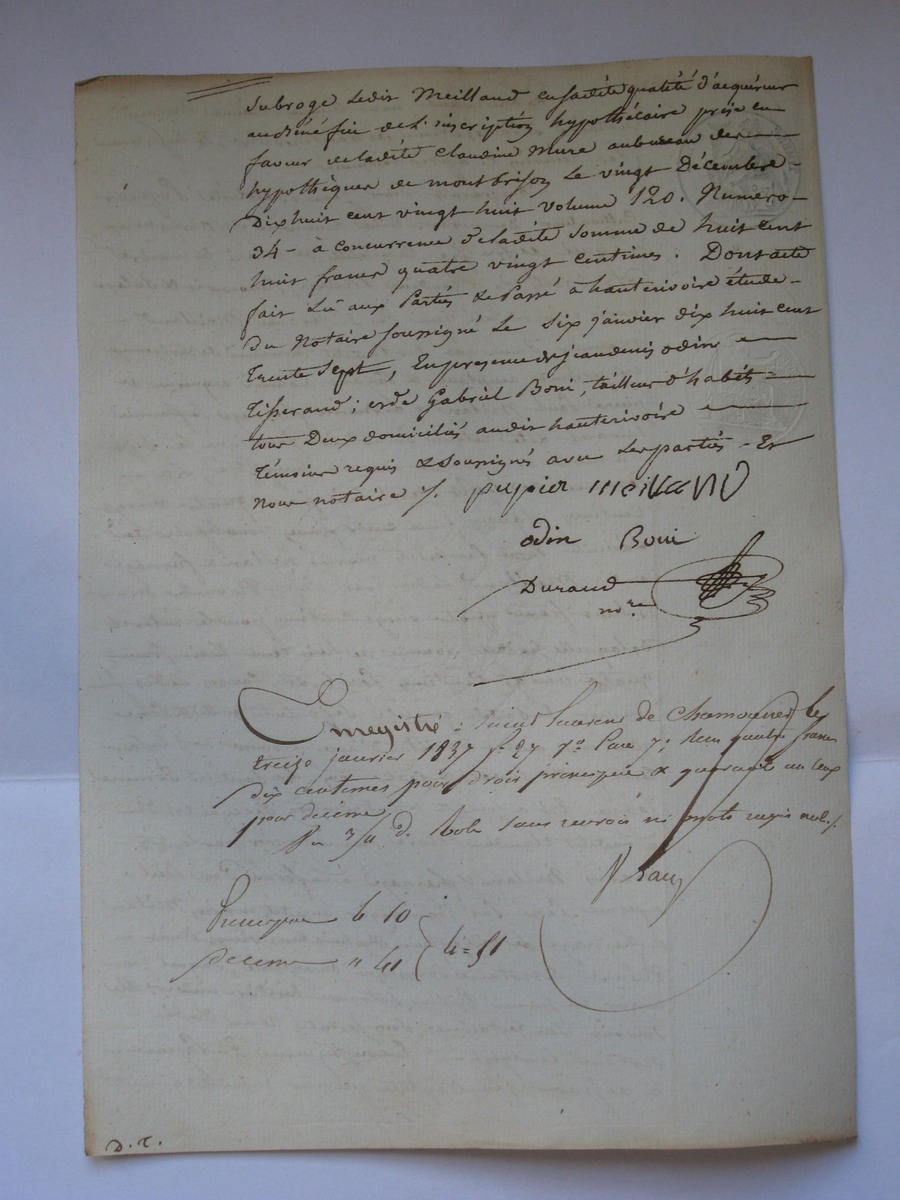 subroge ledit Meilland en sadite qualité d'acquéreur
au bénéfice de l'inscription hypothécaire prise en
faveur de ladite Claudine Mure au bureau des
hypothèques de montbrison le vingt Décembre
Dix huit cent vingt huit volume 120. Numero
34 - à concurrence de ladite somme de huit cent
huit francs quatre vingt centimes. Dont acte
fait Lu aux Parties & Passé à hauterivoire étude
Du Notaire soussigné le six janvier dix huit cent
Trente Sept, En presence de jean denis odin
Tisserand; et de Gabriel Boni, tailleur d'habits
tous Deux domiciliés audit hauterivoire
Témoins requis & soussignés avec les parties - Et
nous notaire /.
pupier meilland
odin Boni
Durand
nore
Enregistré à Saint Laurent de Chamousset le
treize janvier 1837 fo 27 Vo Case 7; reçu quatre francs
dix centimes pour droit principal & quarante un cent
pour décime
sans renvois ni mots rayés nuls /.
Principal 4 10
Décime " 41
4 = 51
D. T.